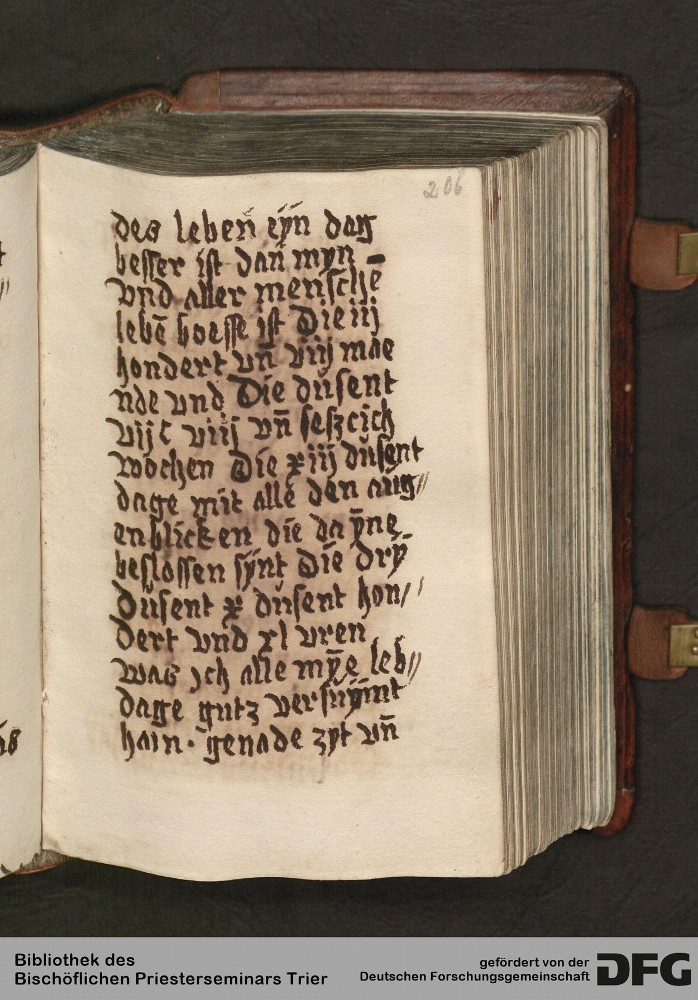 206
des leben̄ eÿn dag
besser ist dan̄ myn
vnd aller menschē
lebē boesse ist Die iij
hondert vn̄ viij mae
nde vnd Die dusent
vijc viij vn̄ seszcich
wochen Die xiij dusent
dage mit allē den aug//
enblicken die da ȳne
beslossen sÿnt Die drÿ
Dusent x dusent hon//
Dert vnd xl vren
was jch alle mȳe leb//
dage gutz versuÿmt
hain · genade zyt vn̄
Bibliothek des
Bischöflichen Priesterseminars Trier
gefördert von der
Deutschen Forschungsgemeinschaft
DFG